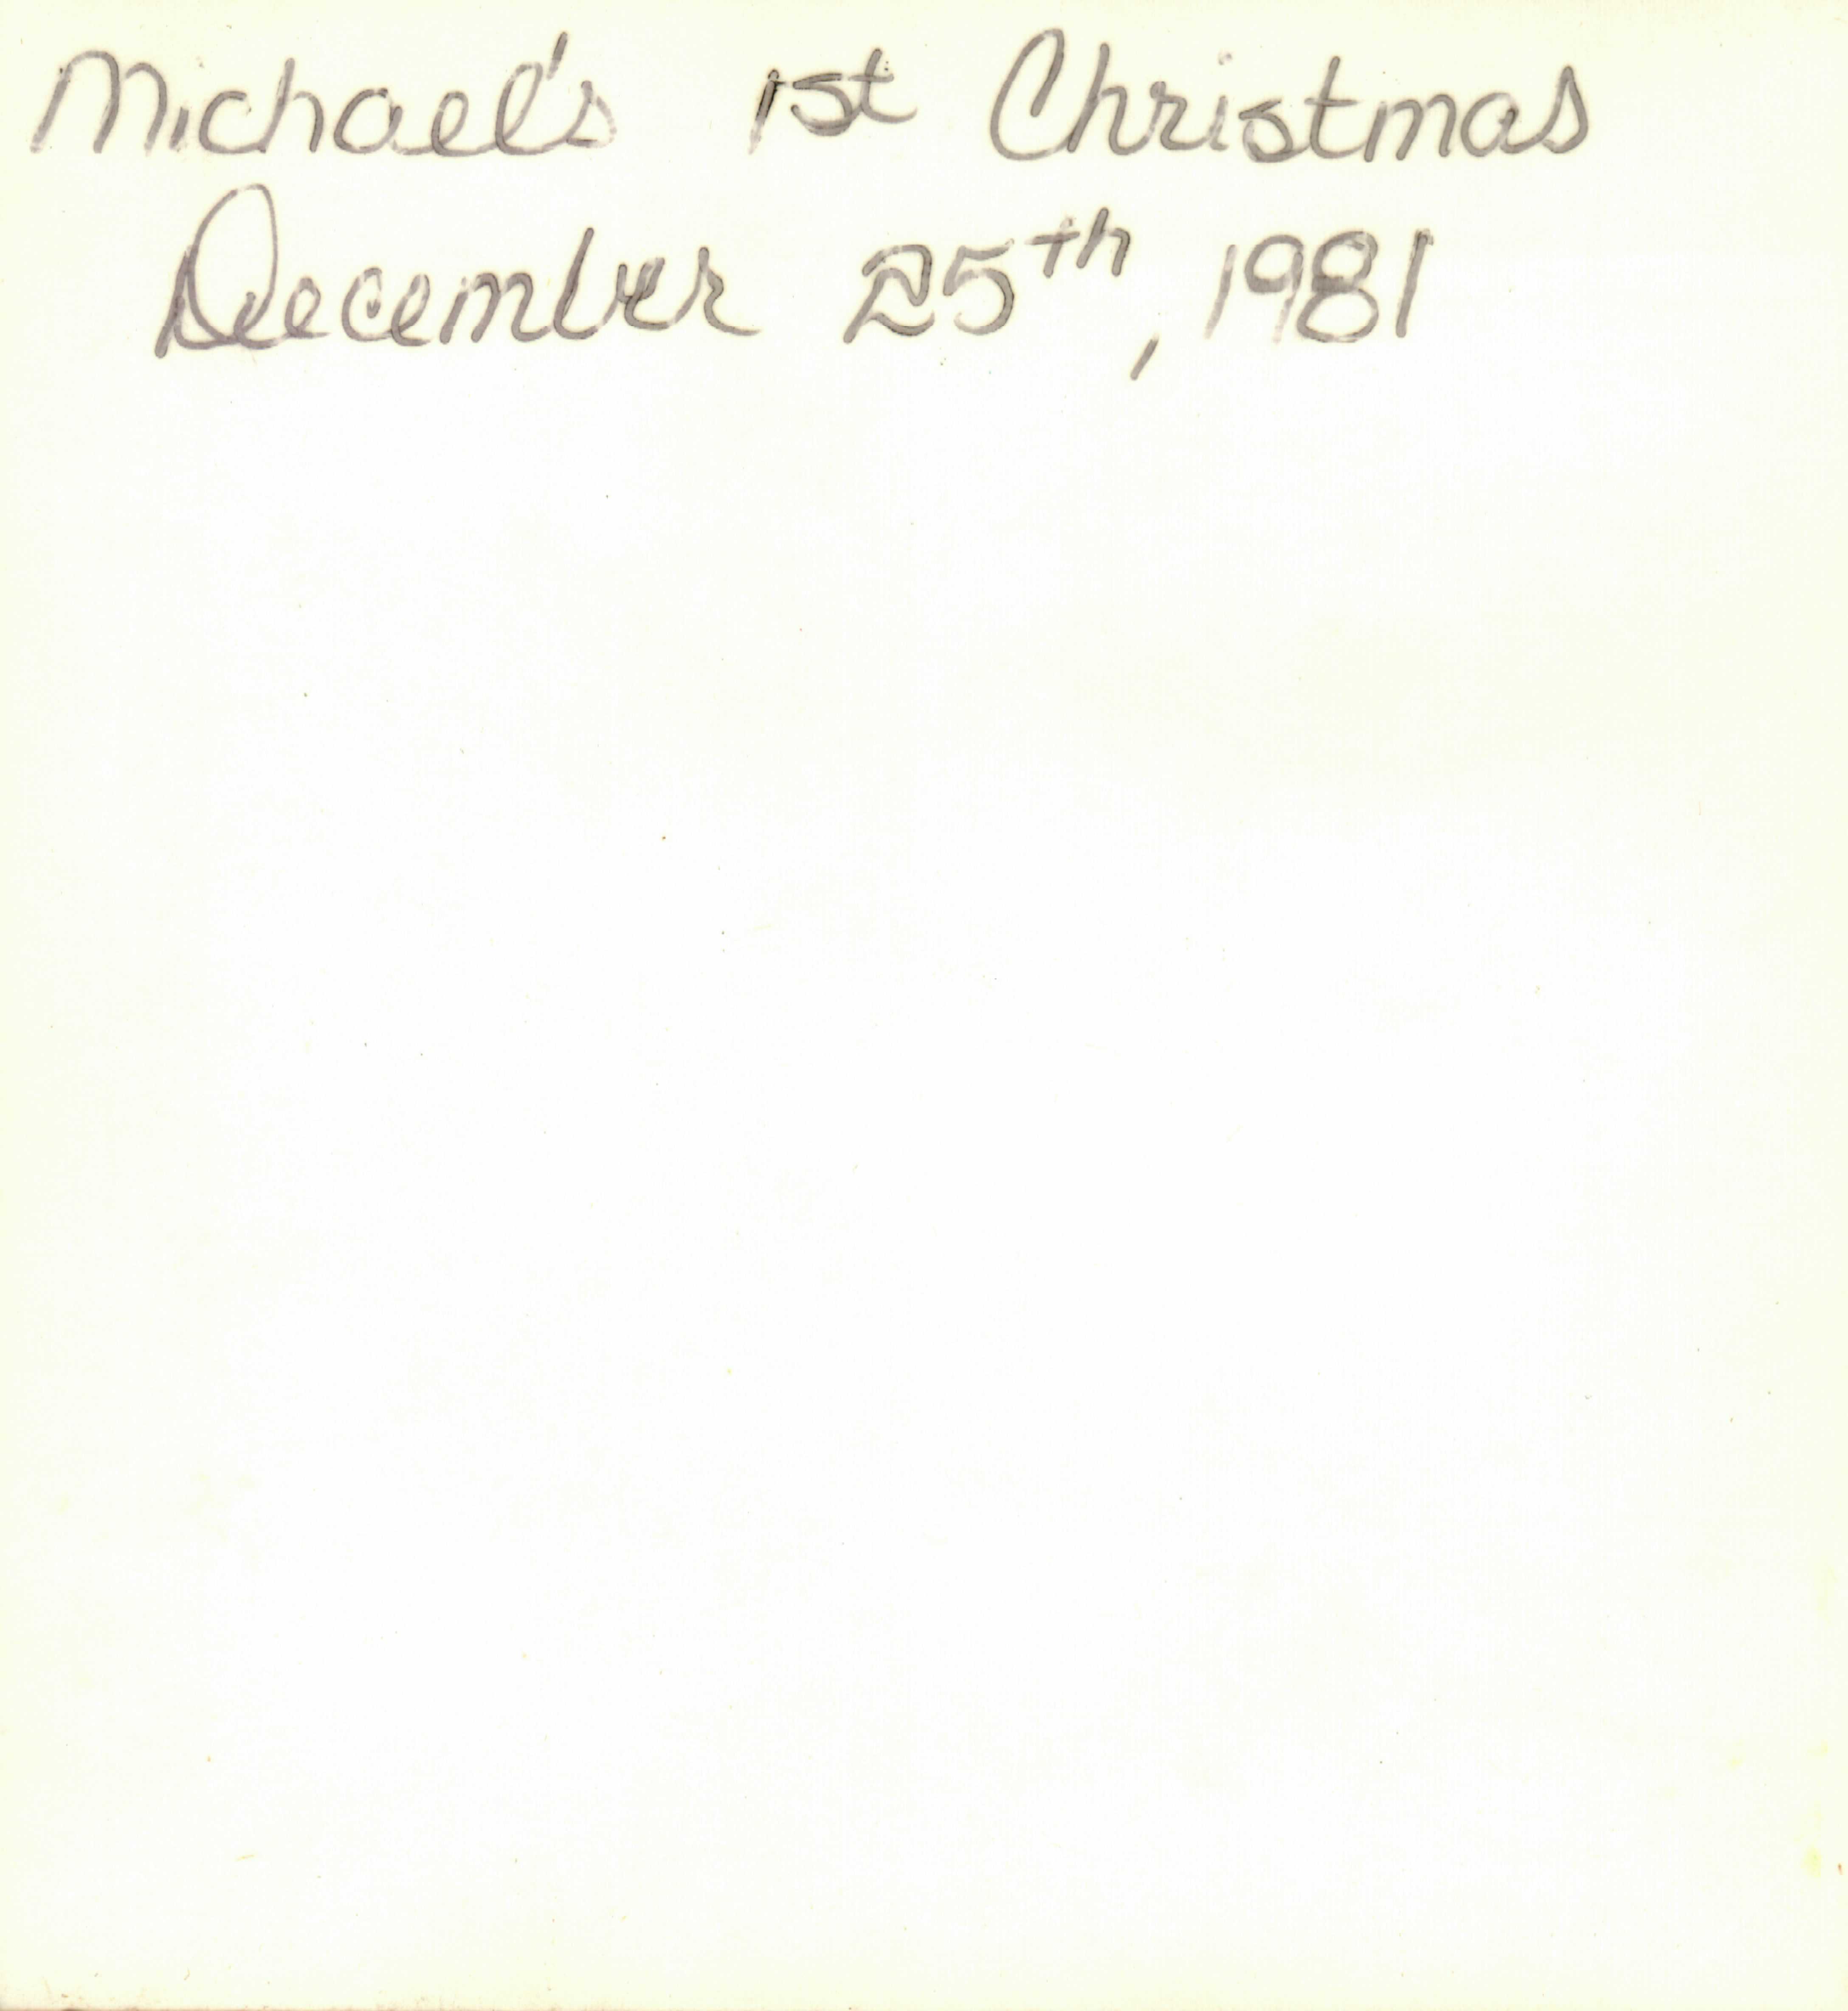 Michael's 1st Christmas
December 25th, 1981